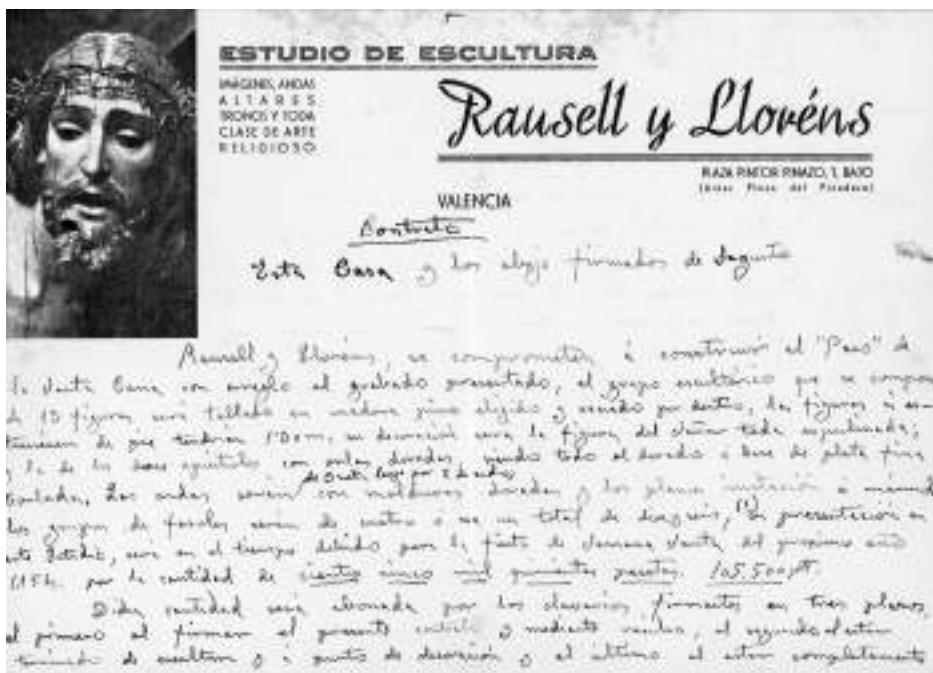 ESTUDIO DE ESCULTURA
IMÁGENES, ANDAS
ALTARES
TRONOS Y TODA
CLASE DE ARTE
RELIGIOSO
Rausell y Lloréns
PLAZA PINTOR PINAZO, 1, BAJO
(Antes Plaza del Picadero)
VALENCIA
Contrato
Esta Casa y los abajo firmados de Sagunto
Rausell y Lloréns, se comprometen á construir el "Paso" de
la Santa Cena con arreglo al grabado presentado, el grupo escultórico que se compone
de 13 figuras será tallado en madera pino elegido y secado por dentro, las figuras
de que tendrán 1'20 m. su decoración será la figura del Señor toda
y la de los doce apóstoles con orlas doradas, siendo todo el dorado a base de plata fina
Las andas serán con molduras doradas y los planos imitación á
los grupos de faroles serán de cuatro ó sea un total de dieciseis, (1) su presentación en
este Estudio, será en el tiempo debido para la fiesta de Semana Santa del proximo año
por la cantidad de ciento cinco mil quinientas pesetas. 105,500 pt.
Dicha cantidad será abonada por los clavarios firmantes en tres plazos,
el primero al firmar el presente contrato y mediante recibo, el segundo al estar
terminado de escultura y á punto de decoración y el último al estar completamente